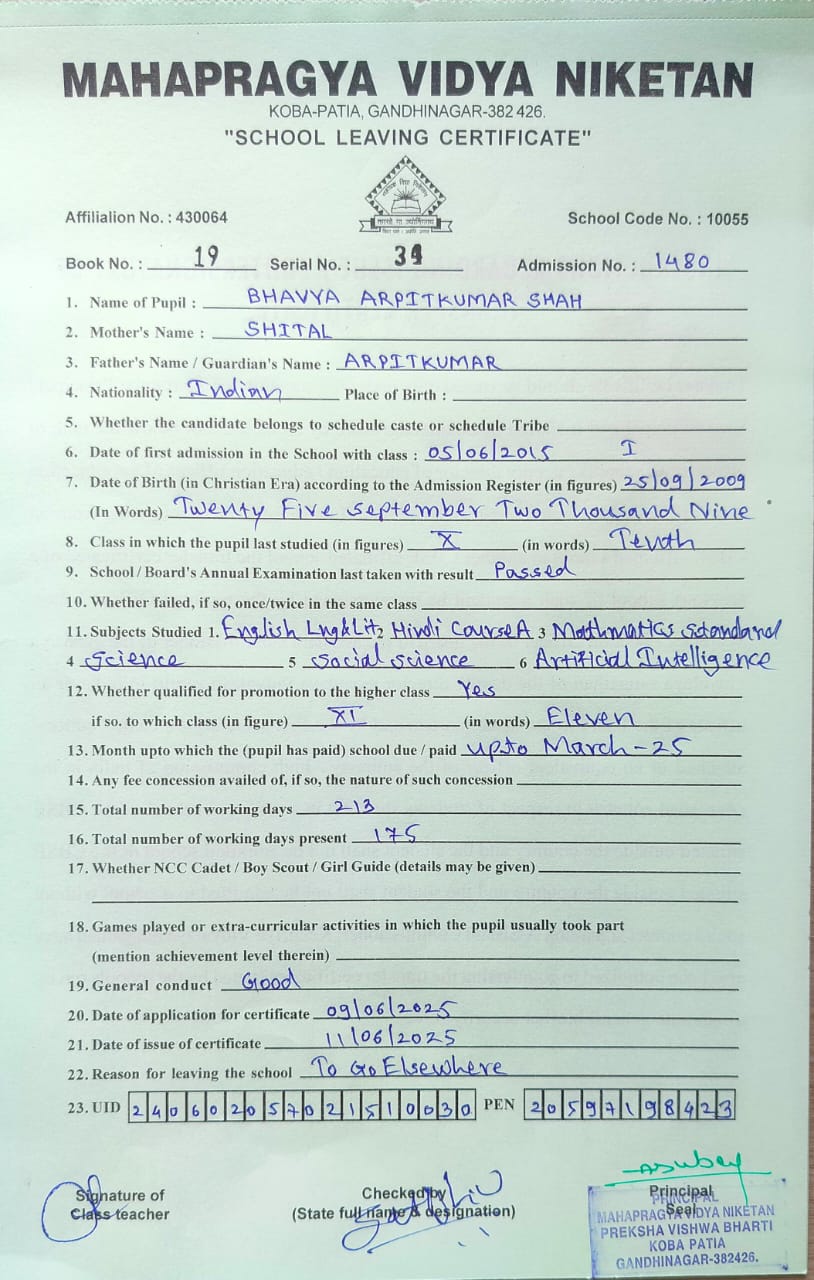 MAHAPRAGYA VIDYA NIKETAN
KOBA-PATIA, GANDHINAGAR-382 426.
"SCHOOL LEAVING CERTIFICATE"
Affilialion No. : 430064 School Code No. : 10055
Book No. : 19 Serial No. : 34 Admission No. : 1480
1. Name of Pupil : BHAVYA ARPITKUMAR SHAH
2. Mother's Name : SHITAL
3. Father's Name / Guardian's Name : ARPITKUMAR
4. Nationality : Indian Place of Birth :
5. Whether the candidate belongs to schedule caste or schedule Tribe
6. Date of first admission in the School with class : 05/06/2015 I
7. Date of Birth (in Christian Era) according to the Admission Register (in figures) 25/09/2009
(In Words) Twenty Five September Two Thousand Nine
8. Class in which the pupil last studied (in figures) X (in words) Tenth
9. School / Board's Annual Examination last taken with result Passed
10. Whether failed, if so, once/twice in the same class
11. Subjects Studied 1. English Lng&Lit 2 Hindi Course A 3 Mathmatics Standard
4 Science 5 Social science 6 Artificial Intelligence
12. Whether qualified for promotion to the higher class Yes
if so. to which class (in figure) XI (in words) Eleven
13. Month upto which the (pupil has paid) school due / paid upto March-25
14. Any fee concession availed of, if so, the nature of such concession
15. Total number of working days 213
16. Total number of working days present 175
17. Whether NCC Cadet / Boy Scout / Girl Guide (details may be given)
18. Games played or extra-curricular activities in which the pupil usually took part
(mention achievement level therein)
19. General conduct Good
20. Date of application for certificate 09/06/2025
21. Date of issue of certificate 11/06/2025
22. Reason for leaving the school To Go Elsewhere
23. UID 240602057021510030 PEN 20597198423
Signature of Checked by Principal
Class teacher (State full name & designation) Seal
PRINCIPAL
MAHAPRAGYA VIDYA NIKETAN
PREKSHA VISHWA BHARTI
KOBA PATIA
GANDHINAGAR-382426.